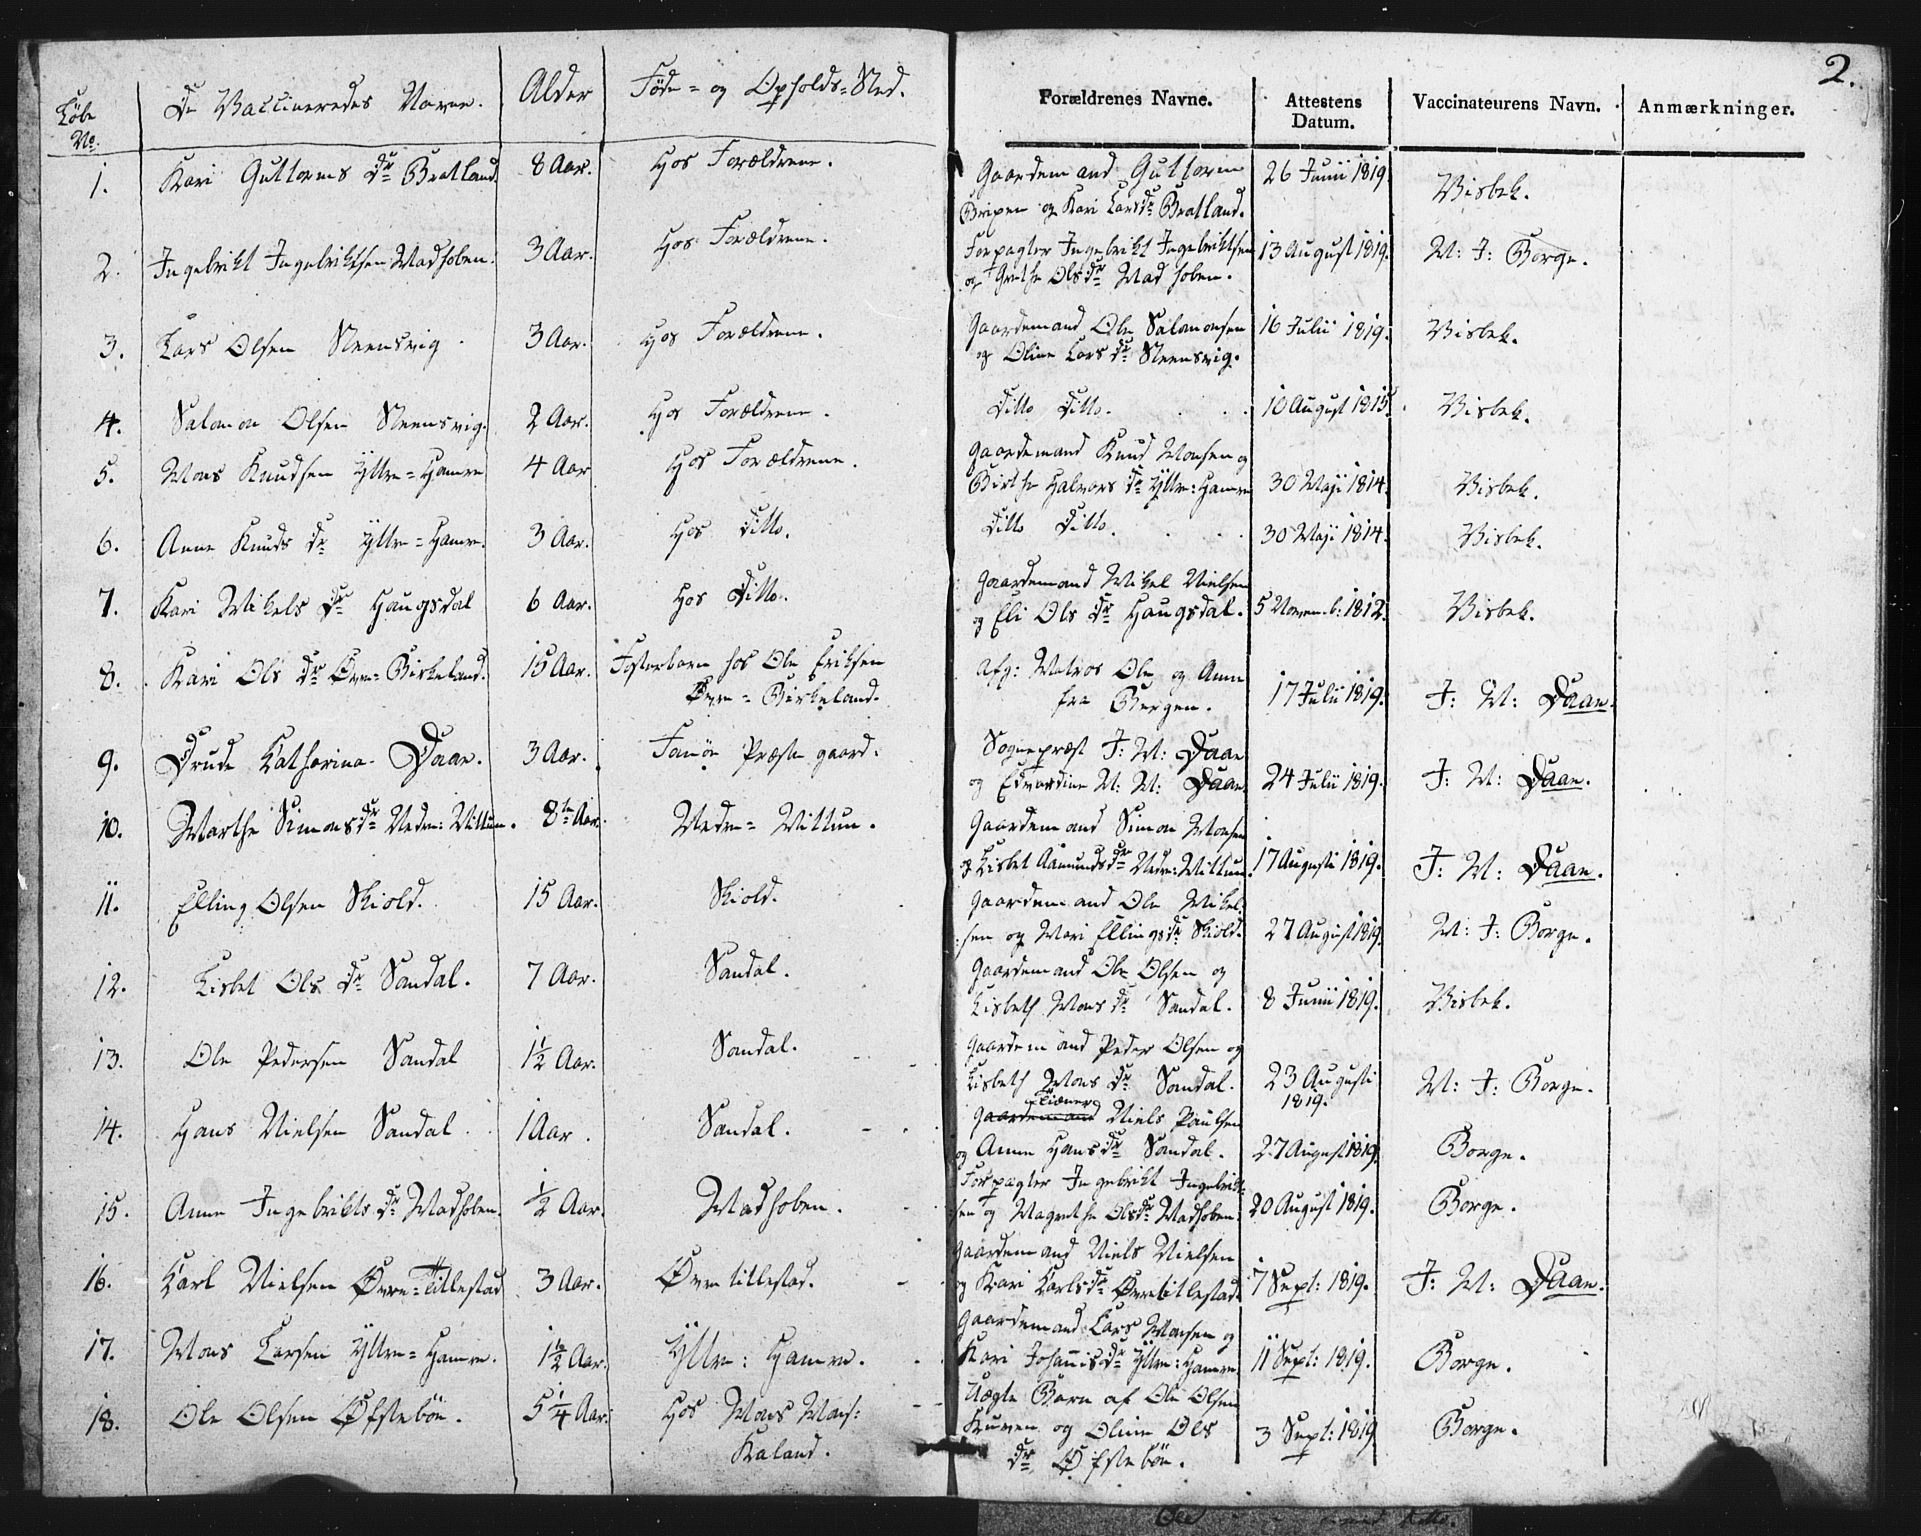 2.
Löbe No. De Vaccineredes Navne. Alder Føde- og Opholds-Sted. Forældrenes Navne. Attestens Datum. Vaccinateurens Navn. Anmærkninger.
1. Kari Guttorms dr Bratland. 8 Aar. Hos Forældrene. Gaardemand Guttorm 26 Junii 1819. Visbek.
og Kari Larsdr Bratland.
2. Ingebrikt Ingebriktsen Madhoben. 3 Aar. Hos Forældrene. Forpagter Ingebrikt Ingebriktsen 13 August 1819. M: J: Borge.
og Grethe Olsdr Madhoben.
3. Lars Olsen Steensvig. 3 Aar. Hos Forældrene. Gaardemand Ole Salomonsen 16 Julii 1819. Visbek.
og Oline Larsdr Steensvig.
4. Salomon Olsen Steensvig. 2 Aar. Hos Forældrene. Ditto Ditto. 10 August 1815. Visbek.
5. Mons Knudsen Yttre-Hamre 4 Aar Hos Forældrene. Gaardemand Knud Monsen og
Birthe Halvors dr Yttre: Hamre 30 Maji 1814. Visbek.
6. Anne Knuds dr Yttre-Hamre. 3 Aar. Hos Ditto. Ditto Ditto. 30 Maji 1814. Visbek.
7. Kari Mikels Dr Haugsdal 6 Aar. Hos Ditto. Gaardemand Mikel Nielsen
og Eli Ols dr Haugsdal. 5 Novemb: 1812. Visbek.
8. Kari Ols dr Øvre-Birkeland. 15 Aar. Fosterbarn hos Ole Eriksen afg: Matros Ole og Anne
Øvre-Birkeland. fra Bergen. 17 Julii 1819. J: M: Daae.
9. Drude Catharina Daae. 3 Aar. Fanöe Præstegaard. Sognepræst J: M: Daae
og Edvardine M: M: Daae 24 Julii 1819. J: M: Daae.
10. Marthe Simonsdr Nedre: Mittun. 8 Aar. Nedre-Mittun. Gaardemand Simon Monsen
og Lisbet Aamundsdr Nedre: Mittun. 17 Augusti 1819. J: M: Daae.
11. Elling Olsen Skiold. 15 Aar. Skiold. Gaardemand Ole Mikel:
:sen og Mari Ellingsdr Skiold. 27 August 1819. M: J: Borge.
12. Lisbet Ols dr Sandal. 7 Aar. Sandal. Gaardemand Ole Olsen og
Lisbeth Mons dr Sandal. 8 Junii 1819. Visbek.
13. Ole Pedersen Sandal 1½ Aar. Sandal. Gaardemand Peder Olsen og
Lisbeth Mons dr Sandal. 23 Augusti 1819. M: J: Borge.
14. Hans Nielsen Sandal. 1 Aar. Sandal. Gaardemand Tiener Niels Paulsen
og Anne Hansdr Sandal. 27 August 1819. Borge.
15. Anne Ingebrikts dr Madhoben. ½ Aar. Madhoben. Forpagter Ingebrikt Ingebrikt:
:sen og Magrethe Olsdr Madhoben. 20 August 1819. Borge.
16. Karl Nielsen Øvre-Titlestad 3 Aar. Øvretitlestad. Gaardemand Niels Nielsen
og Kari Karlsdr Øvretitlestad. 7 Sept: 1819. J: M: Daae.
17. Mons Larsen Yttre-Hamre. 1½ Aar. Yttre: Hamre. Gaardemand Lars Monsen og
Kari Johannisdr Yttre: Hamre 11 Sept: 1819. Borge.
18. Ole Olsen Øfstebøe. 5¼ Aar. Hos Mons Mons: Uægte Barn af Ole Olsen
Kaland. Kuven og Oline Ols 3 Sept: 1819 Borge.
dr Øfstebøe.